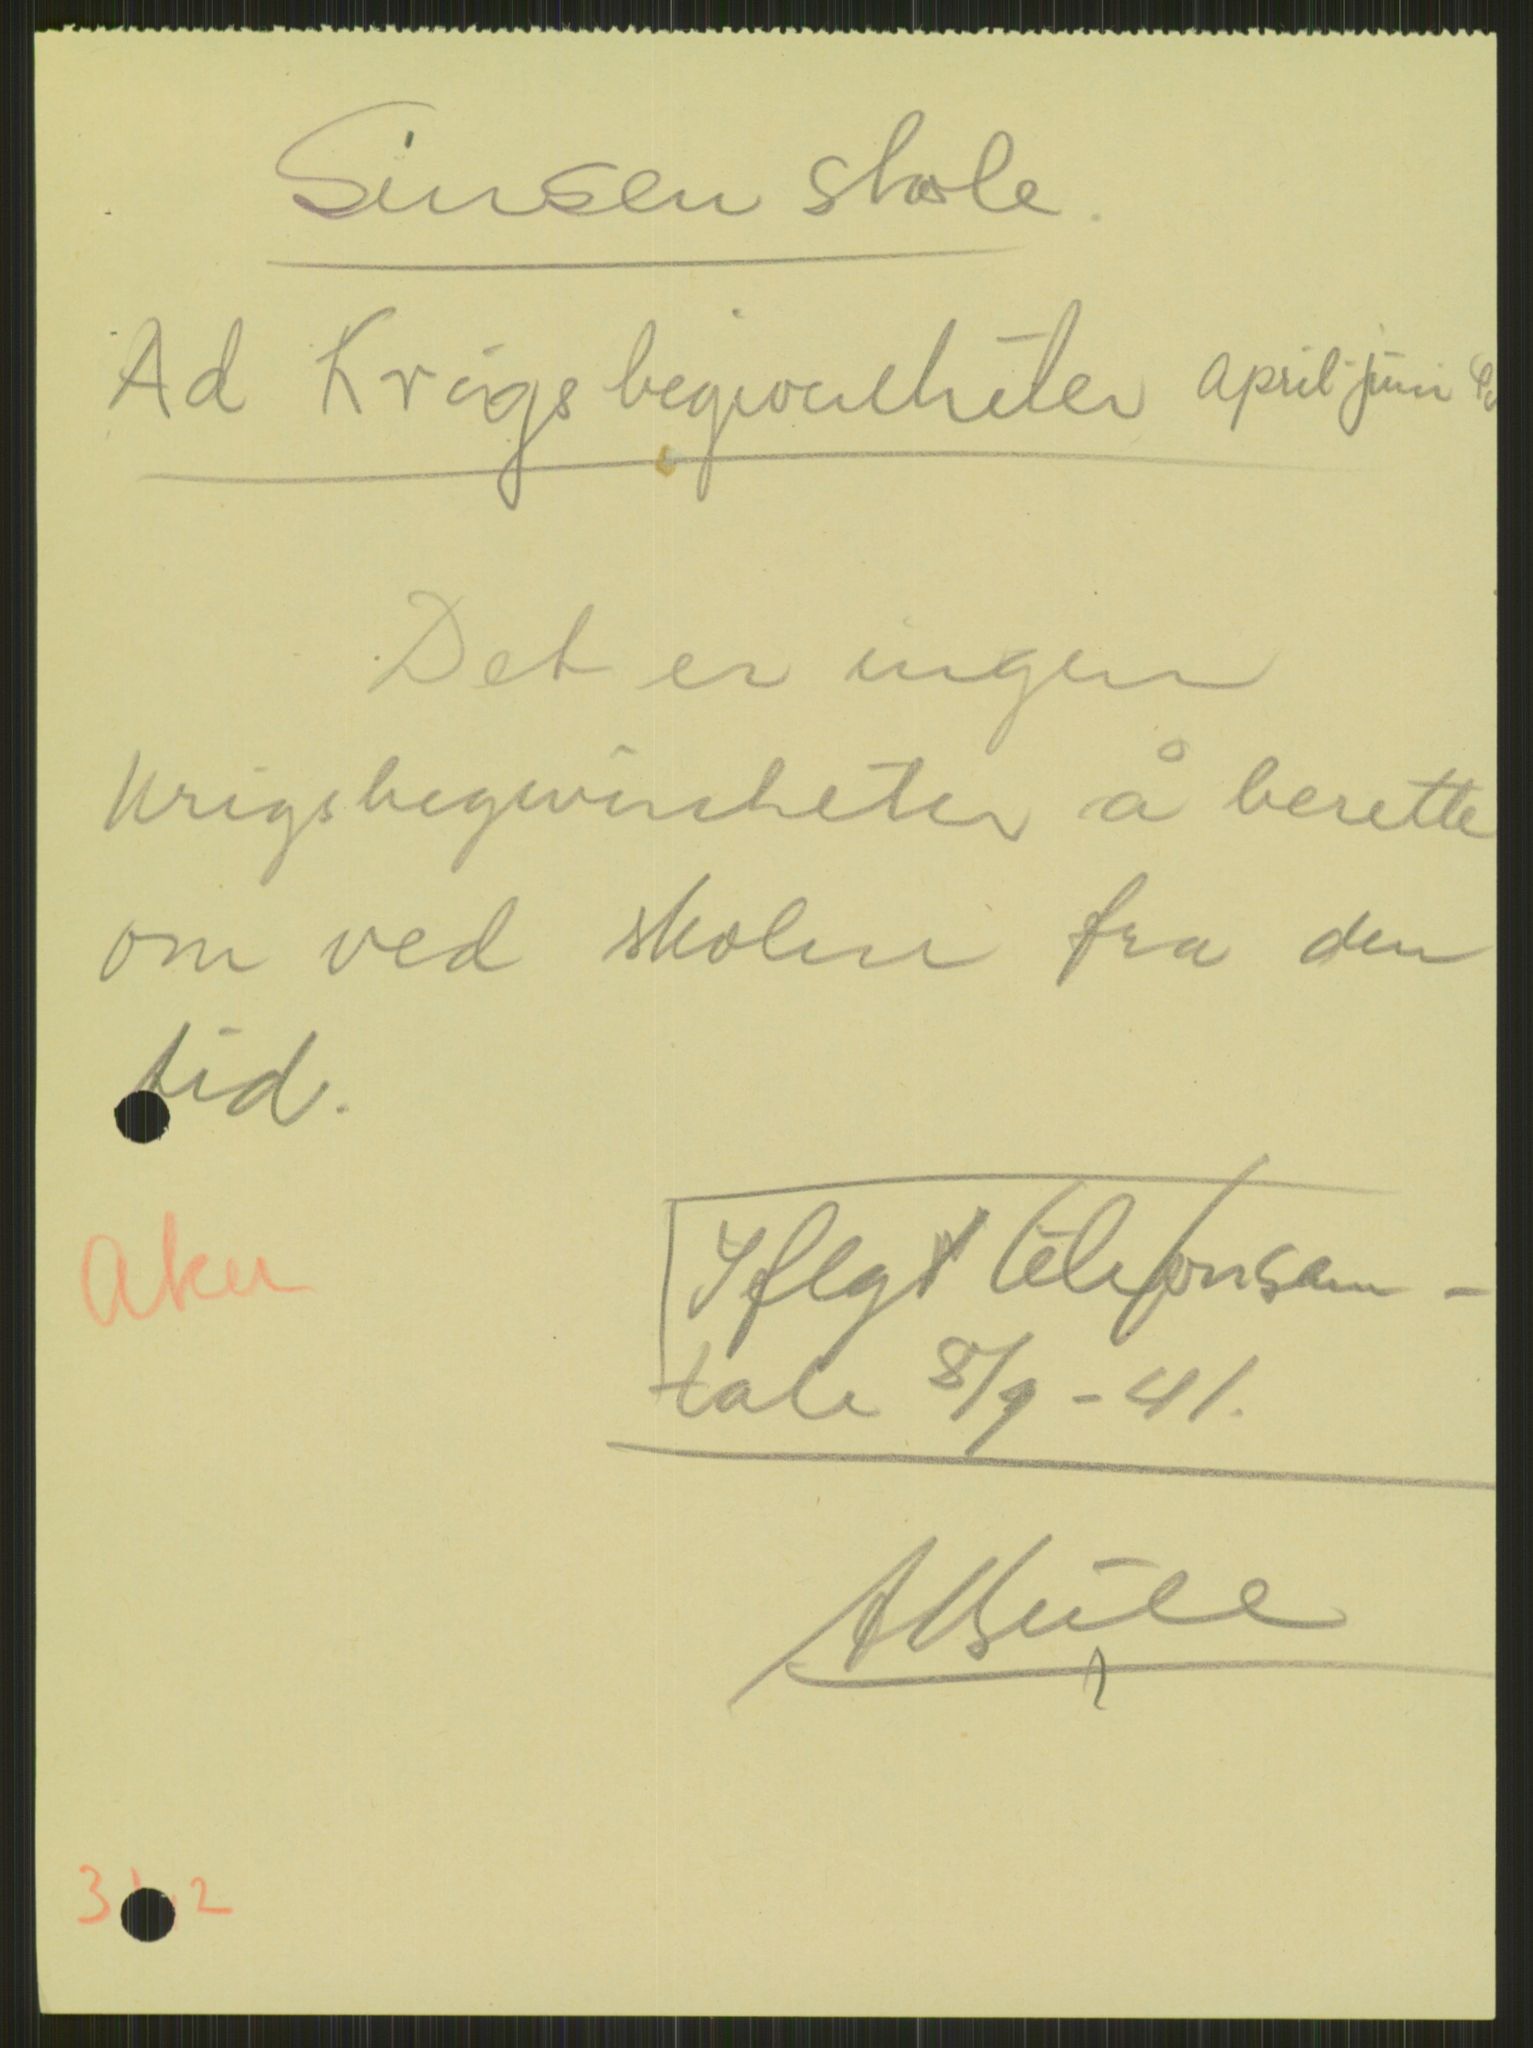 Sinsen skole.
Ad Krigsbegivenheter April-juni
Det er ingen
krigsbegivenheter å berette
om ved skolen fra den
tid.
Aker
Iflgt telefonsam-
tale 8/9-41.
ABull